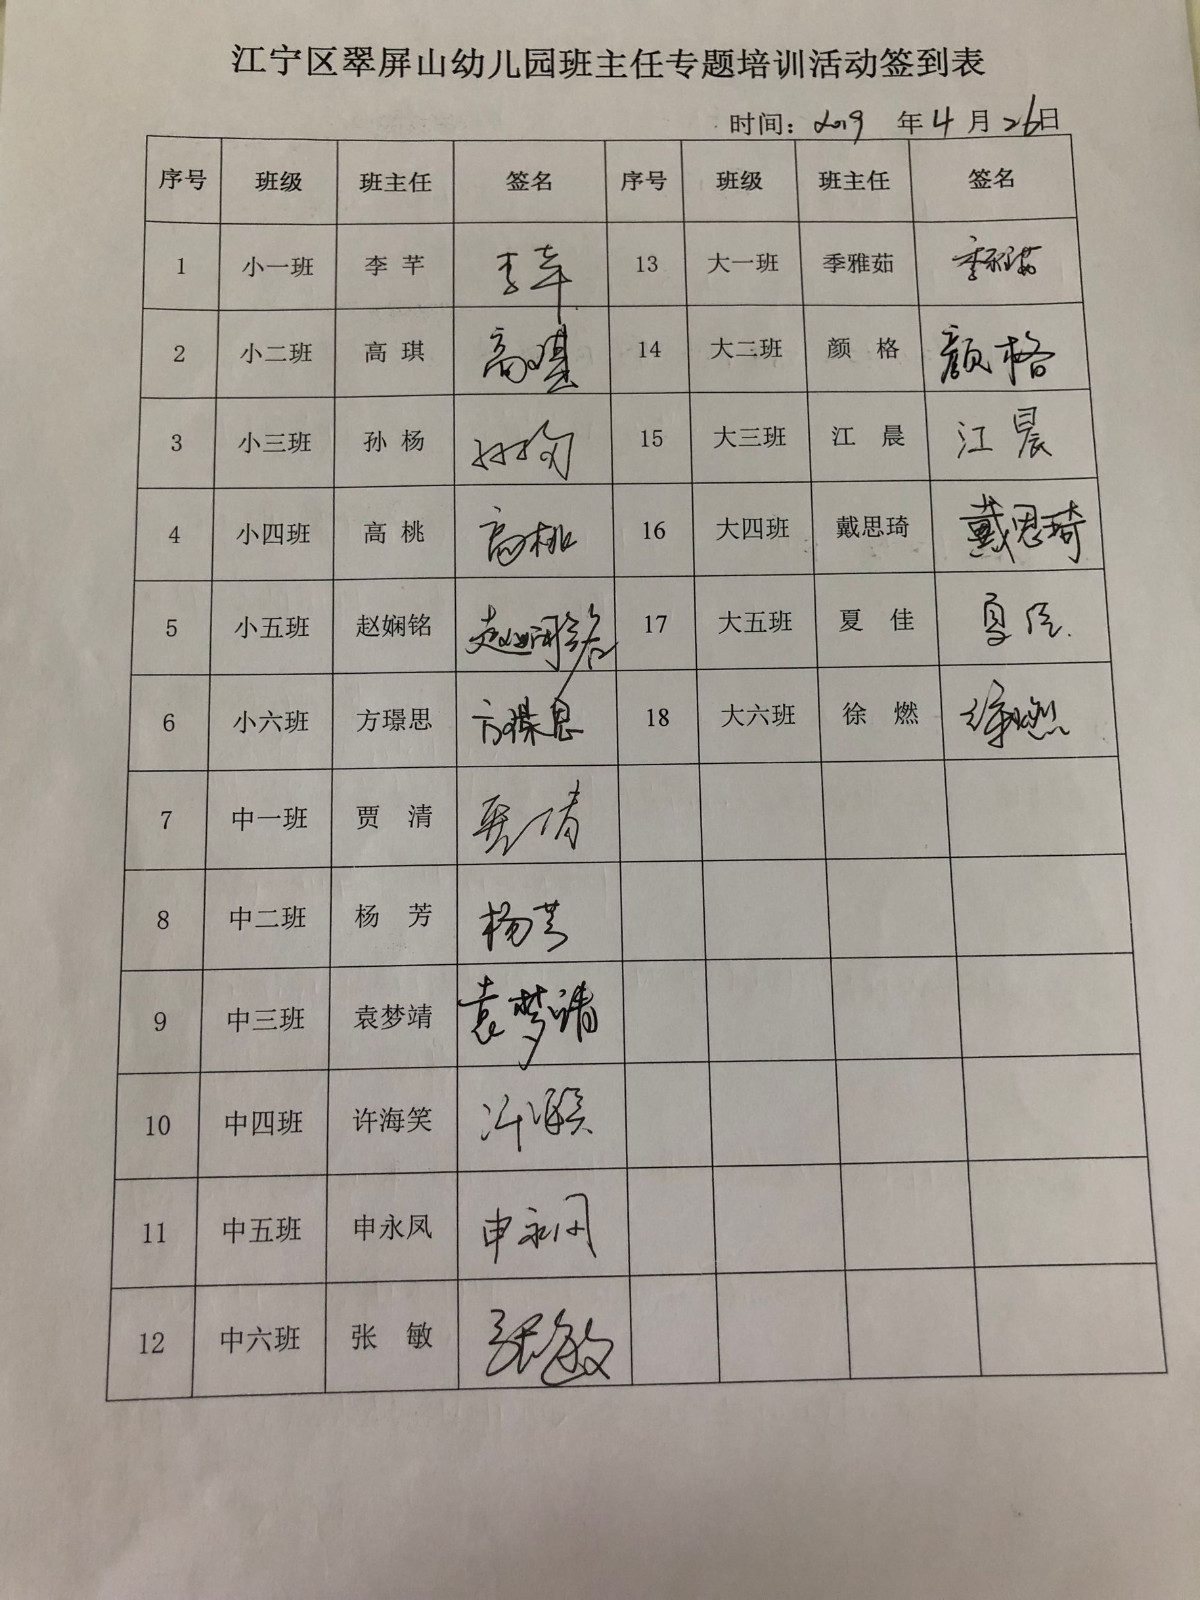 江宁区翠屏山幼儿园班主任专题培训活动签到表
时间：2019 年 4 月 26日
序号 班级 班主任 签名 序号 班级 班主任 签名
1 小一班 李 芊 李芊 13 大一班 季雅茹 季雅茹
2 小二班 高 琪 高琪 14 大二班 颜 格 颜格
3 小三班 孙 杨 孙杨 15 大三班 江 晨 江晨
4 小四班 高 桃 高桃 16 大四班 戴思琦 戴思琦
5 小五班 赵娴铭 赵娴铭 17 大五班 夏 佳 夏佳
6 小六班 方璟思 方璟思 18 大六班 徐 燃 徐燃
7 中一班 贾 清 贾清
8 中二班 杨 芳 杨芳
9 中三班 袁梦靖 袁梦靖
10 中四班 许海笑 许海笑
11 中五班 申永凤 申永凤
12 中六班 张 敏 张敏